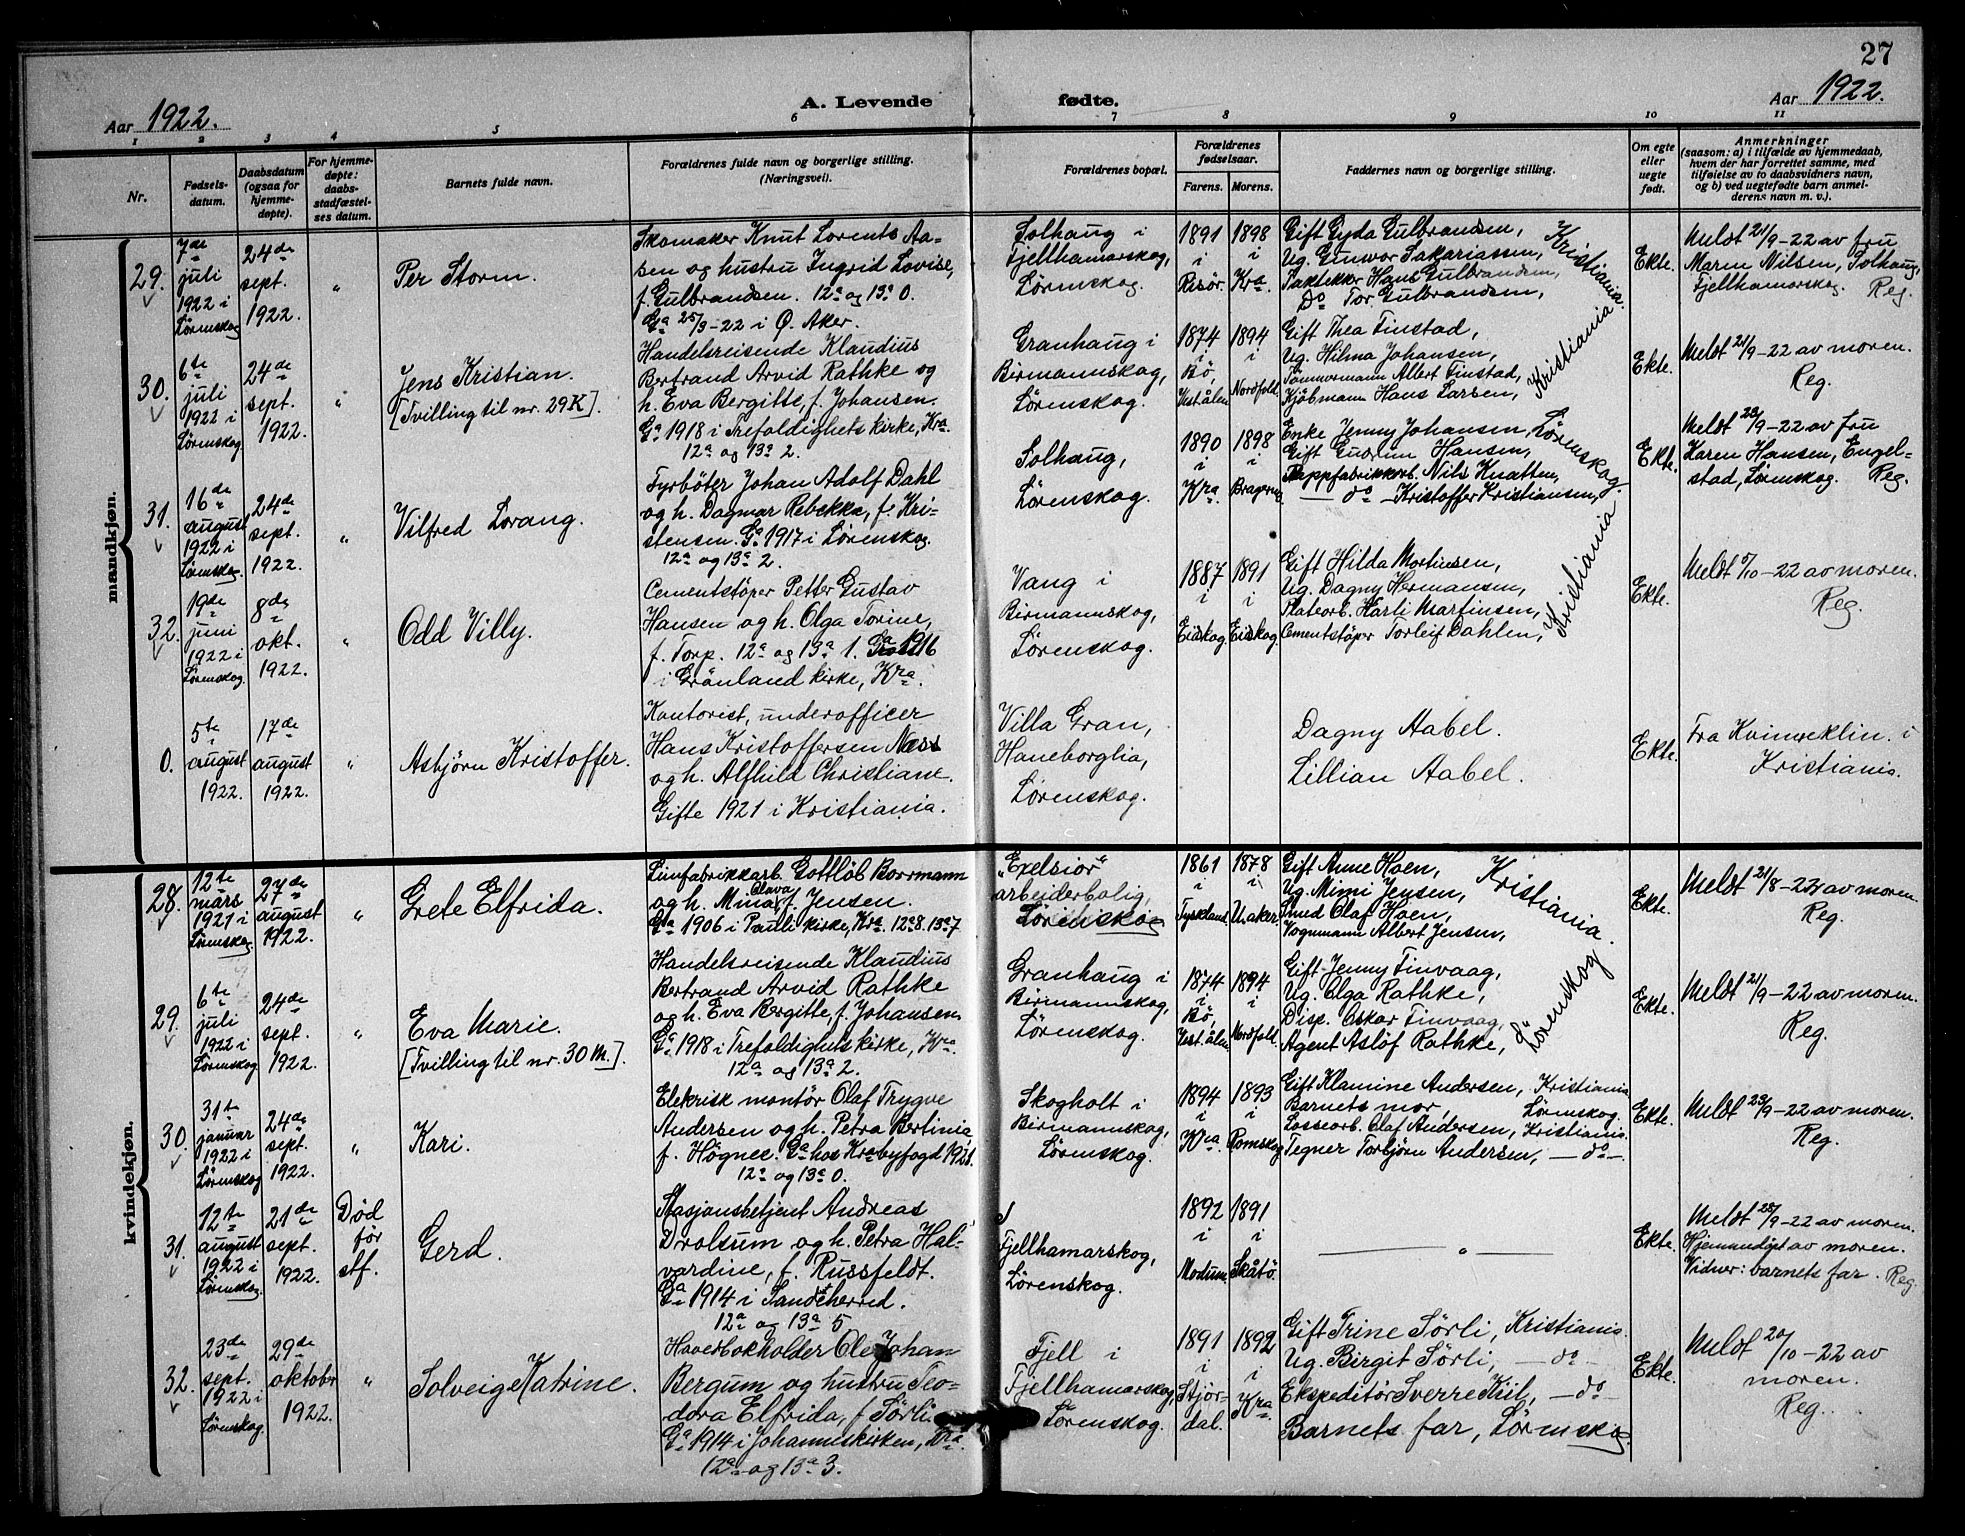 27
Aar 1922.
A. Levende
fødte.
Aar 1922.
1 2 3 4 5 6 7 8 9 10 11
Nr.
Fødsels-
datum.
Daabsdatum
(ogsaa for
hjemme-
døpte).
For hjemme-
døpte:
daabs-
stadfæstel-
ses datum.
Barnets fulde navn.
Forældrenes fulde navn og borgerlige stilling.
(Næringsvei).
Forældrenes bopæl.
Forældrenes
fødselsaar.
Farens. Morens.
Faddernes navn og borgerlige stilling.
Om egte
eller
uegte
født.
Anmerkninger
(saasom: a) i tilfælde av hjemmedaab,
hvem der har forrettet samme, med
tilføielse av to daabsvidners navn,
og b) ved uegtefødte barn anmel-
derens navn m. v.).
mandkjøn.
29.
7de
juli
1922 i
Lørenskog
24de
sept.
1922.
"
Per Storm.
Skomaker Knut Lorents Aa-
sen og hustru Ingrid Lovise,
f. Gulbrandsen. 12a og 13a 0.
Ga 25/3-22 i Ø. Aker.
Solhaug i
Fjellhamarskog,
Lørenskog.
1891
i
Risör.
1898
i
Kra.
Gift Gyda Gulbrandsen,
Ug. Gunvor Sakariassen,
Taktekker Hans Gulbrandsen,
Do Tor Gulbrandsen,
Kristiania.
Ekte.
Meldt 21/9-22 av fru
Maren Nilsen, Solhaug,
Fjellhamarskog. Reg.
30.
6te
juli
1922 i
Lørenskog
24de
sept.
1922.
"
Jens Kristian.
[Tvilling til nr. 29 K].
Handelsreisende Klaudius
Bertrand Arvid Rathke og
h. Eva Bergitte, f. Johansen.
Ga 1918 i Trefoldighets kirke, Kra.
12a og 13a 2.
Granhaug i
Birmannskog,
Lørenskog.
1874
i
Bö,
Vest.ålen
1894
i
Nordfold.
Gift Thea Finstad,
Ug. Hilma Johansen,
Tömmermann Albert Finstad,
Kjöbmann Hans Larsen,
Kristiania
Ekte.
Meldt 21/9-22 av moren.
Reg.
31.
16de
august
1922 i
Lørenskog.
24de
sept.
1922.
"
Vilfred Lorang.
Fyrböter Johan Adolf Dahl
og h. Dagmar Rebekka, f. Kri-
stensen. Ga 1917 i Lørenskog.
12a og 13a 2.
Solhaug,
Lørenskog.
1890
i
Kra.
1898
i
Bragernes
Enke Jenny Johansen,
Gift Gudrun Hansen,
Pappfabrikkarb. Nils Knatten,
— do — Kristoffer Kristiansen,
Lørenskog.
Ekte.
Meldt 23/9-22 av fru
Karen Hansen, Engel-
stad, Lørenskog. Reg.
32.
19de
juni
1922 i
Lørenskog.
8de
okt.
1922.
"
Odd Villy.
Cementstöper Petter Gustav
Hansen og h. Olga Torine,
f. Torp. 12a og 13a 1. Ga 1916
i Grönland kirke, Kra.
Vang i
Birmannskog,
Lørenskog.
1887
i
Eidskog
1891
i
Eidskog.
Gift Hilda Martinsen,
Ug. Dagny Hermansen,
Platearb. Harli Martinsen,
Cementstöper Torleif Dahlen,
Kristiania
Ekte.
Meldt 5/10-22 av moren.
Reg.
0.
5te
august
1922.
17de
august
1922.
"
Asbjörn Kristoffer.
Kontorist, underofficer
Hans Kristoffersen Næss
og h. Alfhild Christiane.
Gifte 1921 i Kristiania.
Villa Gran,
Haneborglia,
Lørenskog.
Dagny Aabel.
Lillian Aabel.
Ekte.
Fra Kvinneklin. i
Kristiania.
kvindekjøn.
28.
12te
mars
1921 i
Lørenskog.
27de
august
1922.
"
Grete Elfrida.
Limfabrikkarb. Gottlöb Borrmann
og h. Mina Olava, f. Jensen.
Ga 1906 i Pauli kirke, Kra. 12a 8. 13a 7
„Exelsior“
arbeiderbolig,
Lørenskog
1861
i
Tyskland.
1878
i
U. aker.
Gift Anne Hoen,
Ug. Mimi Jensen,
Smed Olaf Hoen,
Vognmann Albert Jensen,
Kristiania.
Ekte.
Meldt 21/8-22 av moren.
Reg.
29.
6te
juli
1922 i
Lørenskog
24de
sept.
1922.
"
Eva Marie.
[Tvilling til nr. 30 M.].
Handelsreisende Klaudius
Bertrand Arvid Rathke
og h. Eva Bergitte, f. Johansen
Ga 1918 i Trefoldighets kirke, Kra.
12a og 13a 2.
Granhaug i
Birmannskog,
Lørenskog.
1874
i
Bö,
Vest.ålen
1894
i
Nordfold.
Gift Jenny Finvaag,
Ug. Olga Rathke,
Disp. Oskar Finvaag,
Agent Aslöf Rathke,
Lørenskog
Ekte.
Meldt 21/9-22 av moren.
Reg.
30.
31te
januar
1922 i
Lørenskog
24de
sept.
1922.
"
Kari.
Elekrisk montör Olaf Trygve
Andersen og h. Petra Bertinia,
f. Högnee. Ga hos Kra byfogd 1921.
12a og 13a 0.
Skogholt i
Birmannskog,
Lørenskog.
1894
i
Kra.
1893
i
Romskog
Gift Klamine Andersen, Kristiania
Barnets mor, Lørenskog.
Losseorb. Olaf Andersen, Kristiania.
Tegner Torbjörn Andersen, — do —
Ekte.
Meldt 23/9-22 av moren.
Reg.
31.
12te
august
1922 i
Lørenskog.
21de
sept.
1922.
Död
för
stf.
Gerd.
Stasjonsbetjent Andreas
Drolsum og h. Petra Hal-
vardine, f. Russfeldt.
Ga 1914 i Sandeherred.
12a og 13a 5
Fjellhamarskog,
Lørenskog.
1892
i
Modum.
1891
i
Skåtö.
— " —
Ekte.
Meldt 28/9-22 av moren.
Hjemmedöpt av moren.
Vidner: barnets far. Reg.
32.
23de
sept.
1922 i
Lørenskog.
29de
oktober
1922.
"
Solveig Katrine.
Hovedbokholder Ole Johan
Bergum og hustru Teo-
dora Elfrida, f. Sörli.
Ga 1914 i Johanneskirken, Kra.
12a og 13a 3.
Fjell i
Fjellhamarskog,
Lørenskog.
1891
i
Stjör-
dal.
1892
i
Kra.
Gift Trine Sörli, Kristiania.
Ug. Birgit Sörli, — do —
Ekspeditör Sverre Kiil, — do —
Barnets far, Lörenskog.
Ekte.
Meldt 20/10-22 av
moren.
Reg.